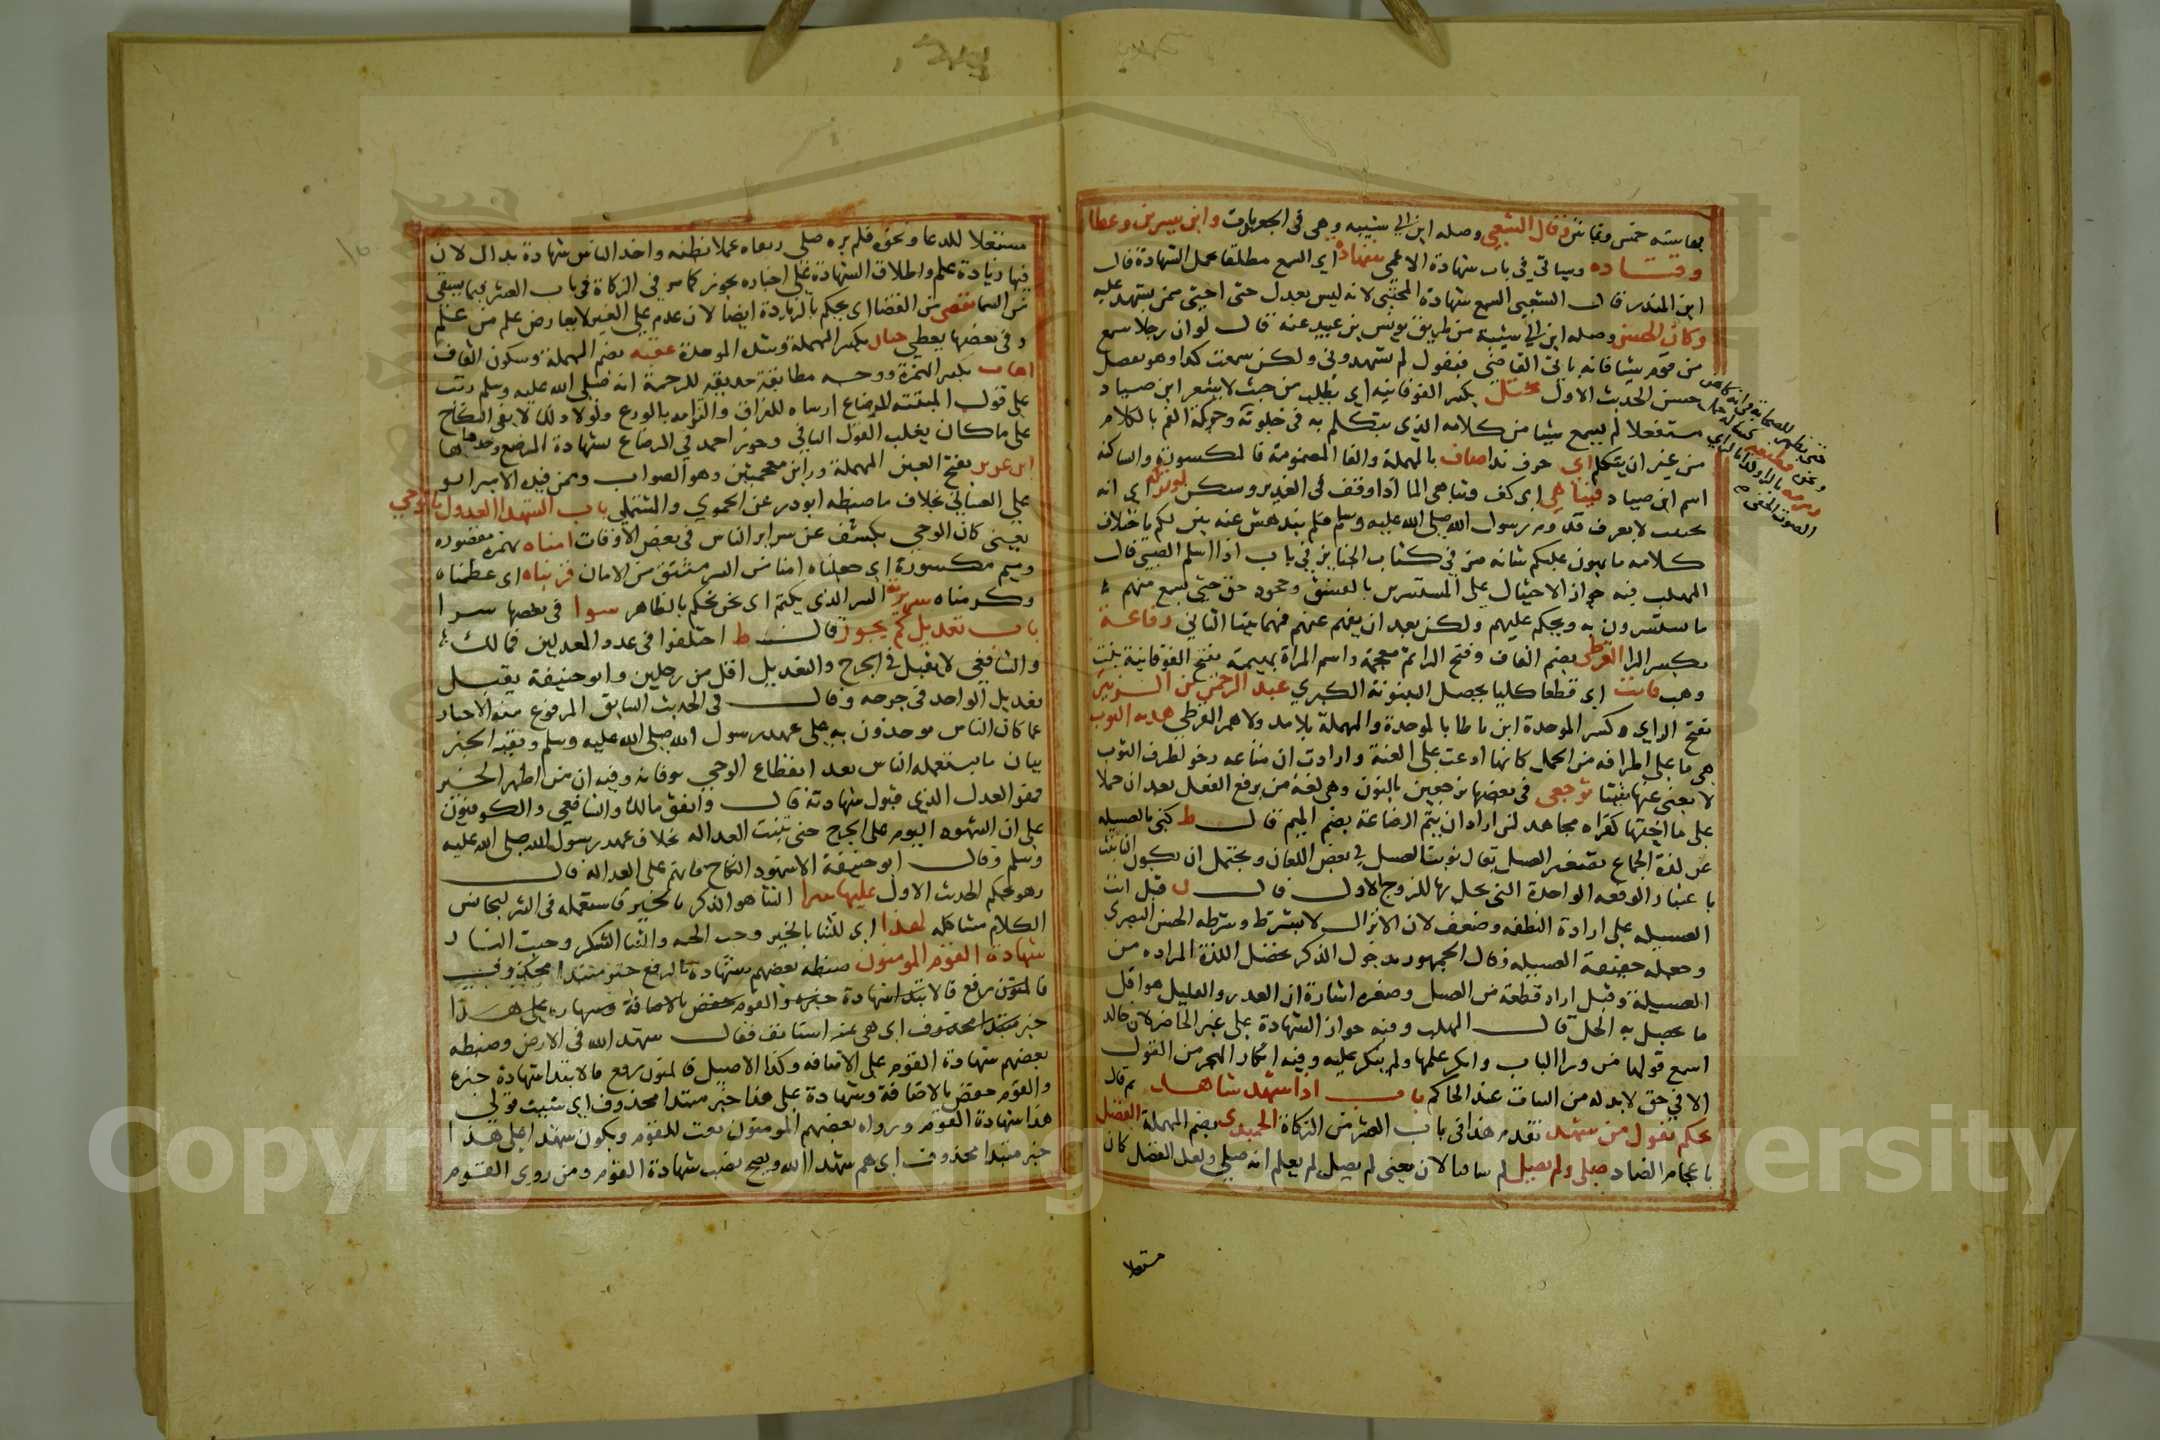 وقال الشعبي وصله ابن ابي شيبه وهي في وابن سيرين وعطا
وقتاده وسياتي في باب شهادة الاعمى شهادة اي السمع مطلقا محل الشهادة قال
ابن المنذر قال الشعبي السمع شهادة المختبي لانه ليس بعدل حتى اختبى ممن يشهد عليه
وكان الحسن وصله ابن ابي شيبة من طريق يونس بن عبيد عنه قال لو ان رجلا سمع
من قوم شيا فانه ياتي القاضي فيقول لم يشهدوني ولكن سمعت كذا وهو تفصيل
حسن الحديث الاول يختل بكسر الفوقانيه اي يطلب من حيث لا يشعر ابن صياد
مستغفلا لم يسمع شيا من كلامه الذي يتكلم به في خلوته وحركة الفم بالكلام
من غير ان يتكلم اي حرف ندا صاف بالمهملة والفا المضمومة فالمكسورة والساكنة
اسم ابن صياد فتناهى اي كف وتناهى الما اذا وقف في الغدير وسكن لو تركته اي انه
بحيث لا يعرف قدوم رسول الله صلى الله عليه وسلم فلم يندهش عنه بين لكم باختلاف
كلامه ما يهون عليكم شانه مر في كتاب الجنايز في باب اذا اسلم الصبي قال
المهلب فيه جواز الاحتيال على المستسرين بالفسق وجحود حق حتى يسمع منهم
ما يستسرون به ويحكم عليهم ولكن بعد ان يفهم عنهم فهما بينا الثاني رفاعة
بكسر الرا القرظي بضم القاف وفتح الرا ثم معجمة واسم المراة تميمة بفتح الفوقانية بنت
وهب فابت اي قطعا كليا بحصل البينونة الكبرى عبد الرحمن بن الزبير
بفتح الزاي وكسر الموحدة ابن باطا بالموحدة والمهملة بلا مد ولا همز القرظي هدبه الثوب
هي ما على اطرافه من الخمل كانها ادعت على العنة وارادت ان متاعه رخو كطرف الثوب
لا يغني عنها شيا ترجعي في بعضها ترجعين بالنون وهي لغة من يرفع الفعل بعد ان حملا
على ما اختها كقراه مجاهد لمن اراد ان يتم الرضاعة بضم الميم قال ط كنى بالعسيله
عن لذة الجماع تصغير العسل يقال ثوبت العسل في بعض اللغات ويحتمل ان يكون التانيث
باعتبار الوقعه الواحدة التي يحل بها للزوج الاول قال ك قيل انث
العسيله على ارادة النطفه وضعف لان الانزال لا يشترط وشرطه الحسن البصري
وجعله حقيقة العسيله وقال الجمهور بدخول الذكر تحصل اللذة المراده من
العسيلة وقيل اراد قطعة من العسل وصغره اشارة الى القدر والقليل هو اقل
ما يحصل به الحل قال المهلب وفيه جواز الشهادة على غير الحاضر لان خالد
اسمع قولها من ورا الباب وانكر عليها ولم ينكر عليه وفيه انكار الهجر من القول
الا في حق لابد له من البيان عند الحاكم باب اذا شهد شاهد ثم قال
يحكم بقول من شهد تقدم هذا في باب العشر من الزكاة الحميدي بضم المهملة الفضل
باعجام الضاد صلى ولم يصل لم ينافيا لان يعني لم يصل لم يعلم انه صلى ولعل الفضل كان
مشتغلا
مشتغلا للدعا ونحوه فلم يره صلى رواه عملا بظنه واخذ الناس بشهادة بلال لان
فيها زيادة علم واطلاق الشهادة على اخباره تجوز كما مر في الزكاة في باب العشر فيما يسقى
من السما يقضى من القضا اي يحكم بالزيادة ايضا لان عدم علم الغير لا يعارض علم من علم
وفي بعضها يعطي حبان بكسر المهملة وشدة الموحدة عقبه بضم المهملة وسكون القاف
اهاب بكسر الهمزة ووجه مطابقة حديثه للترجمة انه صلى الله عليه وسلم رتب
على قول المثبته للرضاع ارشاده للفراق والزامه بالورع ولولا ذلك لابقى النكاح
على ما كان يغلب القول النافي وجوز احمد في الرضاع بشهادة المرضع وحدها
ابن عزيز بفتح العين المهملة وزاين معجمتين وهو الصواب
علي الغساني بخلاف ما ضبطه ابو ذر عن الحموي والمستملي باب الشهدا العدول بالوحي
يعني كان الوحي يكشف عن سراير الناس في بعض الاوقات امناه بهمزة مقصورة
وميم مكسورة اي جعلناه امنا من الشر مشتق من الامان قربناه اي عظمناه
وكرمناه سريرته السر الذي يكتم اي نحن نحكم بالظاهر سوا في بعضها سرا
باب تعديل كم يجوز قال ط اختلفوا في عدد المعدلين فمالك
والشافعي لا يقبل في الجرح والتعديل اقل من رجلين وابو حنيفة يقبل
تعديل الواحد في جرحه وقال في الحديث السابق المرفوع منه الاخبار
عما كان الناس يوخذون به على عهد رسول الله صلى الله عليه وسلم وبقية الخبر
بيان ما يستعمله الناس بعد انقطاع الوحي بوفاته وفيه ان من اظهر الخير
فهو العدل الذي قبول شهادته قال واتفق مالك والشافعي والكوفيون
على ان الشهود اليوم على الجرح حتى تثبت العداله بخلاف عهد رسول الله صلى الله عليه
وسلم وقال ابو حنيفة الا شهود النكاح فانهم على العداله قال
وهو يحكم الحديث الاول عليها شرا الثنا هو الذكر بالخير فاستعمله في الشر لتجانس
الكلام مشاكله لهذا اي للثنا بالخير وجبت الجنه والثنا الشر وجبت النار
شهادة القوم المومنون ضبطه بعضهم شهادة بالرفع خبر مبتدا محذوف
فالمومنون رفع بالابتدا شهادة خبره والقوم خفض بالاضافة وشهادة على هذا
خبر مبتدا محذوف اي هي ثم استانف فقال شهدا الله في الارض وضبطه
بعضهم شهادة القوم على الاضافه وكذا الاصيل فالمومنون رفع بالابتدا شهادة خبره
والقوم خفض بالاضافة وشهادة على هذا خبر مبتدا محذوف اي سبب قولي
هذا شهادة القوم ورواه بعضهم المومنون نعت للقوم ويكون شهدا على هذا
خبر مبتدا محذوف اي هم شهدا الله ويصح نصب شهادة القوم ومن روى القوم
Copyright © King Saud University